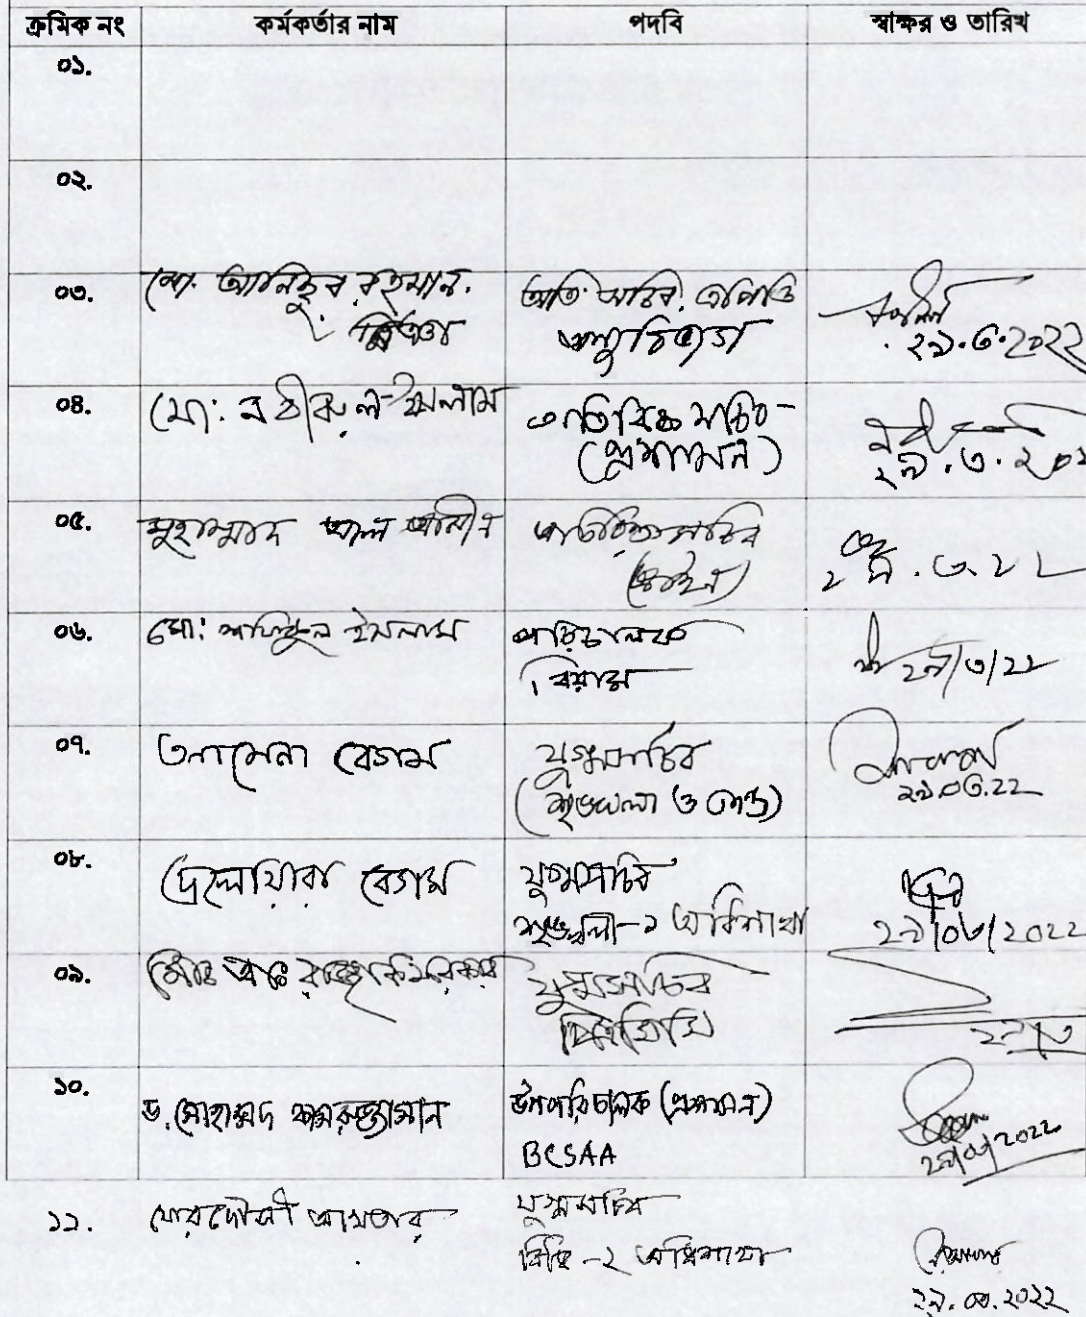 ক্রমিক নং কর্মকর্তার নাম পদবি স্বাক্ষর ও তারিখ
০১.
০২.
০৩. মো. আনিছুর রহমান. অতি: সচিব,
২৯.৩.2022
০৪. মো: নবীরুল ইসলাম অতিরিক্ত সচিব
(প্রশাসন)
২৯.৩.
০৫. মুহাম্মাদ আল আমীন অতিরিক্ত সচিব
(আইন)
০৬. মো: শফিকুল ইসলাম পরিচালক
বিয়াম
২৯/৩/২২
০৭. তাসলিমা বেগম যুগ্মসচিব
(শৃঙ্খলা ও তদন্ত)
২৯.০৩.22
০৮. দেলোয়ারা বেগম যুগ্মসচিব
শৃঙ্খলা-১ অধিশাখা
২৯/০৩/2022
০৯. যুগ্মসচিব
২৯/৩
১০. ড. মোহাম্মদ কামরুজ্জামান উপপরিচালক (প্রশাসন)
BCSAA
২৯/০৩/2022
১১. ফেরদৌসী আখতার যুগ্মসচিব
বিধি-২ অধিশাখা
২৯.০৩.2022